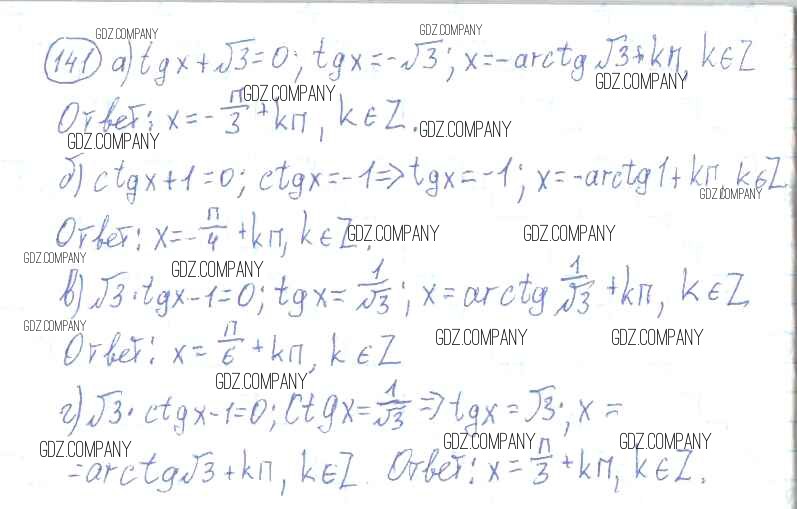 GDZ.COMPANY GDZ.COMPANY
141 а) tgx + √3 = 0; tgx = -√3; x = -arctg √3 + kπ, k ∈ Z
GDZ.COMPANY
GDZ.COMPANY
Ответ: x = -π/3 + kπ, k ∈ Z.
GDZ.COMPANY GDZ.COMPANY
б) ctgx + 1 = 0; ctgx = -1 => tgx = -1; x = -arctg1 + kπ, k ∈ Z
GDZ.COMPANY
Ответ: x = -π/4 + kπ, k ∈ Z.
GDZ.COMPANY GDZ.COMPANY
GDZ.COMPANY GDZ.COMPANY
в) √3·tgx - 1 = 0; tgx = 1/√3; x = arctg 1/√3 + kπ, k ∈ Z
GDZ.COMPANY GDZ.COMPANY GDZ.COMPANY
Ответ: x = π/6 + kπ, k ∈ Z
GDZ.COMPANY
г) √3· ctgx - 1 = 0; Ctgx = 1/√3 => tgx = √3; x =
GDZ.COMPANY GDZ.COMPANY GDZ.COMPANY
= arctg√3 + kπ, k ∈ Z. Ответ: x = π/3 + kπ, k ∈ Z.